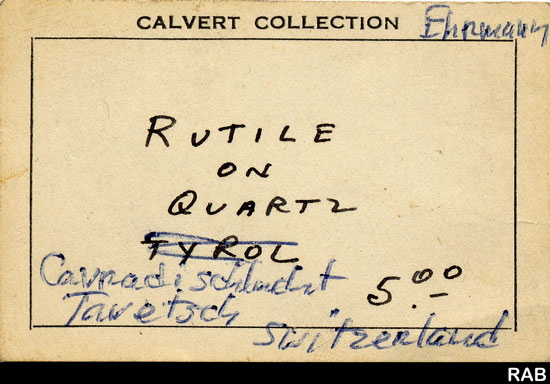 CALVERT COLLECTION Ehrmann
RUTILE
ON
QUARTZ
TYROL
Cavradischlucht 5.00
Tavetsch
Switzerland
RAB